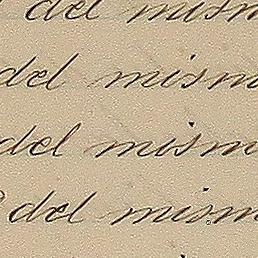 del mism
del mism
del mism
del mism